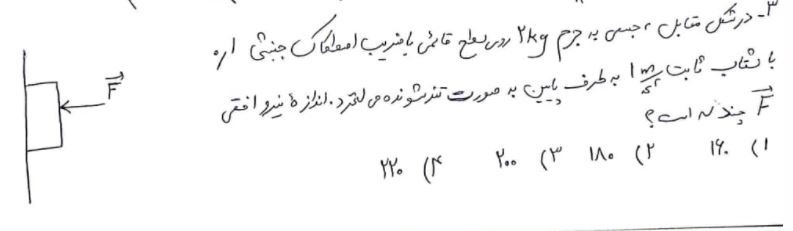 ۳- در شکل مقابل، جسمی به جرم ۲kg روی سطح قائمی با ضریب اصطکاک جنبشی ۰/۱
با شتاب ثابت ۱ m/s² به طرف پایین به صورت تندشونده می لغزد. اندازهٔ نیرو افقی
F چند N است؟
۱) ۱۶۰ ۲) ۱۸۰ ۳) ۲۰۰ ۴) ۲۲۰
F